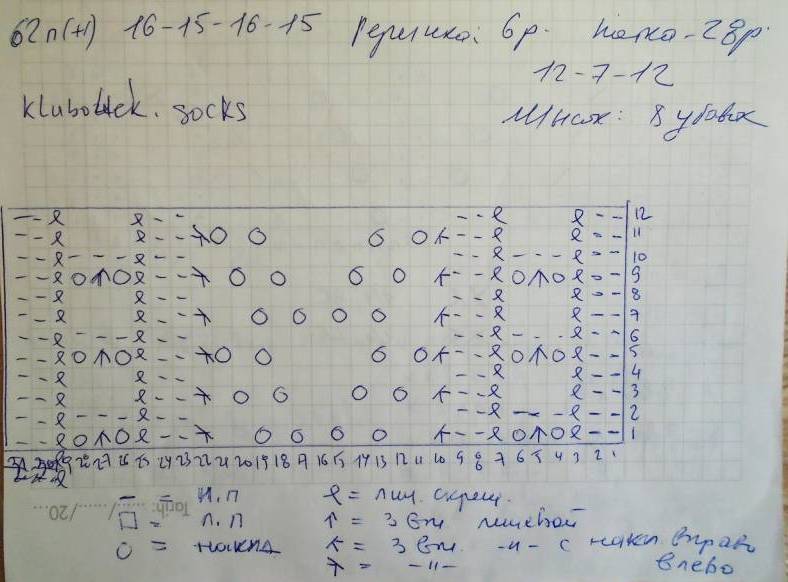 62п(+1) 16-15-16-15 Резинка: 6р. Пятка-28р.
12-7-12
klubo4ek.socks Мысок: 8 убавок
--ℓ ℓ-- --ℓ ℓ-- 12
--ℓ ℓ--⅄O O O O⋏--ℓ ℓ-- 11
--ℓ---ℓ-- --ℓ---ℓ-- 10
--ℓO↑Oℓ--⅄ O O O O ⋏--ℓO↑Oℓ-- 9
--ℓ ℓ-- --ℓ ℓ-- 8
--ℓ ℓ--⅄ O O O O ⋏--ℓ ℓ-- 7
--ℓ---ℓ-- --ℓ---ℓ-- 6
--ℓO↑Oℓ--⅄O O O O⋏--ℓO↑Oℓ-- 5
--ℓ ℓ-- --ℓ ℓ-- 4
--ℓ ℓ--⅄ O O O O ⋏--ℓ ℓ-- 3
--ℓ---ℓ-- --ℓ---ℓ-- 2
--ℓO↑Oℓ--⅄ O O O O ⋏--ℓO↑Oℓ-- 1
28 27 26 25 24 23 22 21 20 19 18 17 16 15 14 13 12 11 10 9 8 7 6 5 4 3 2 1
– = И.П ℓ = лиц. скрещ.
□ = Л.П ↑ = 3 вм. лицевой
O = накид ⋏ = 3 вм. -"- с накл. вправо
⅄ = -"- влево
Tarih: ....../....../20...